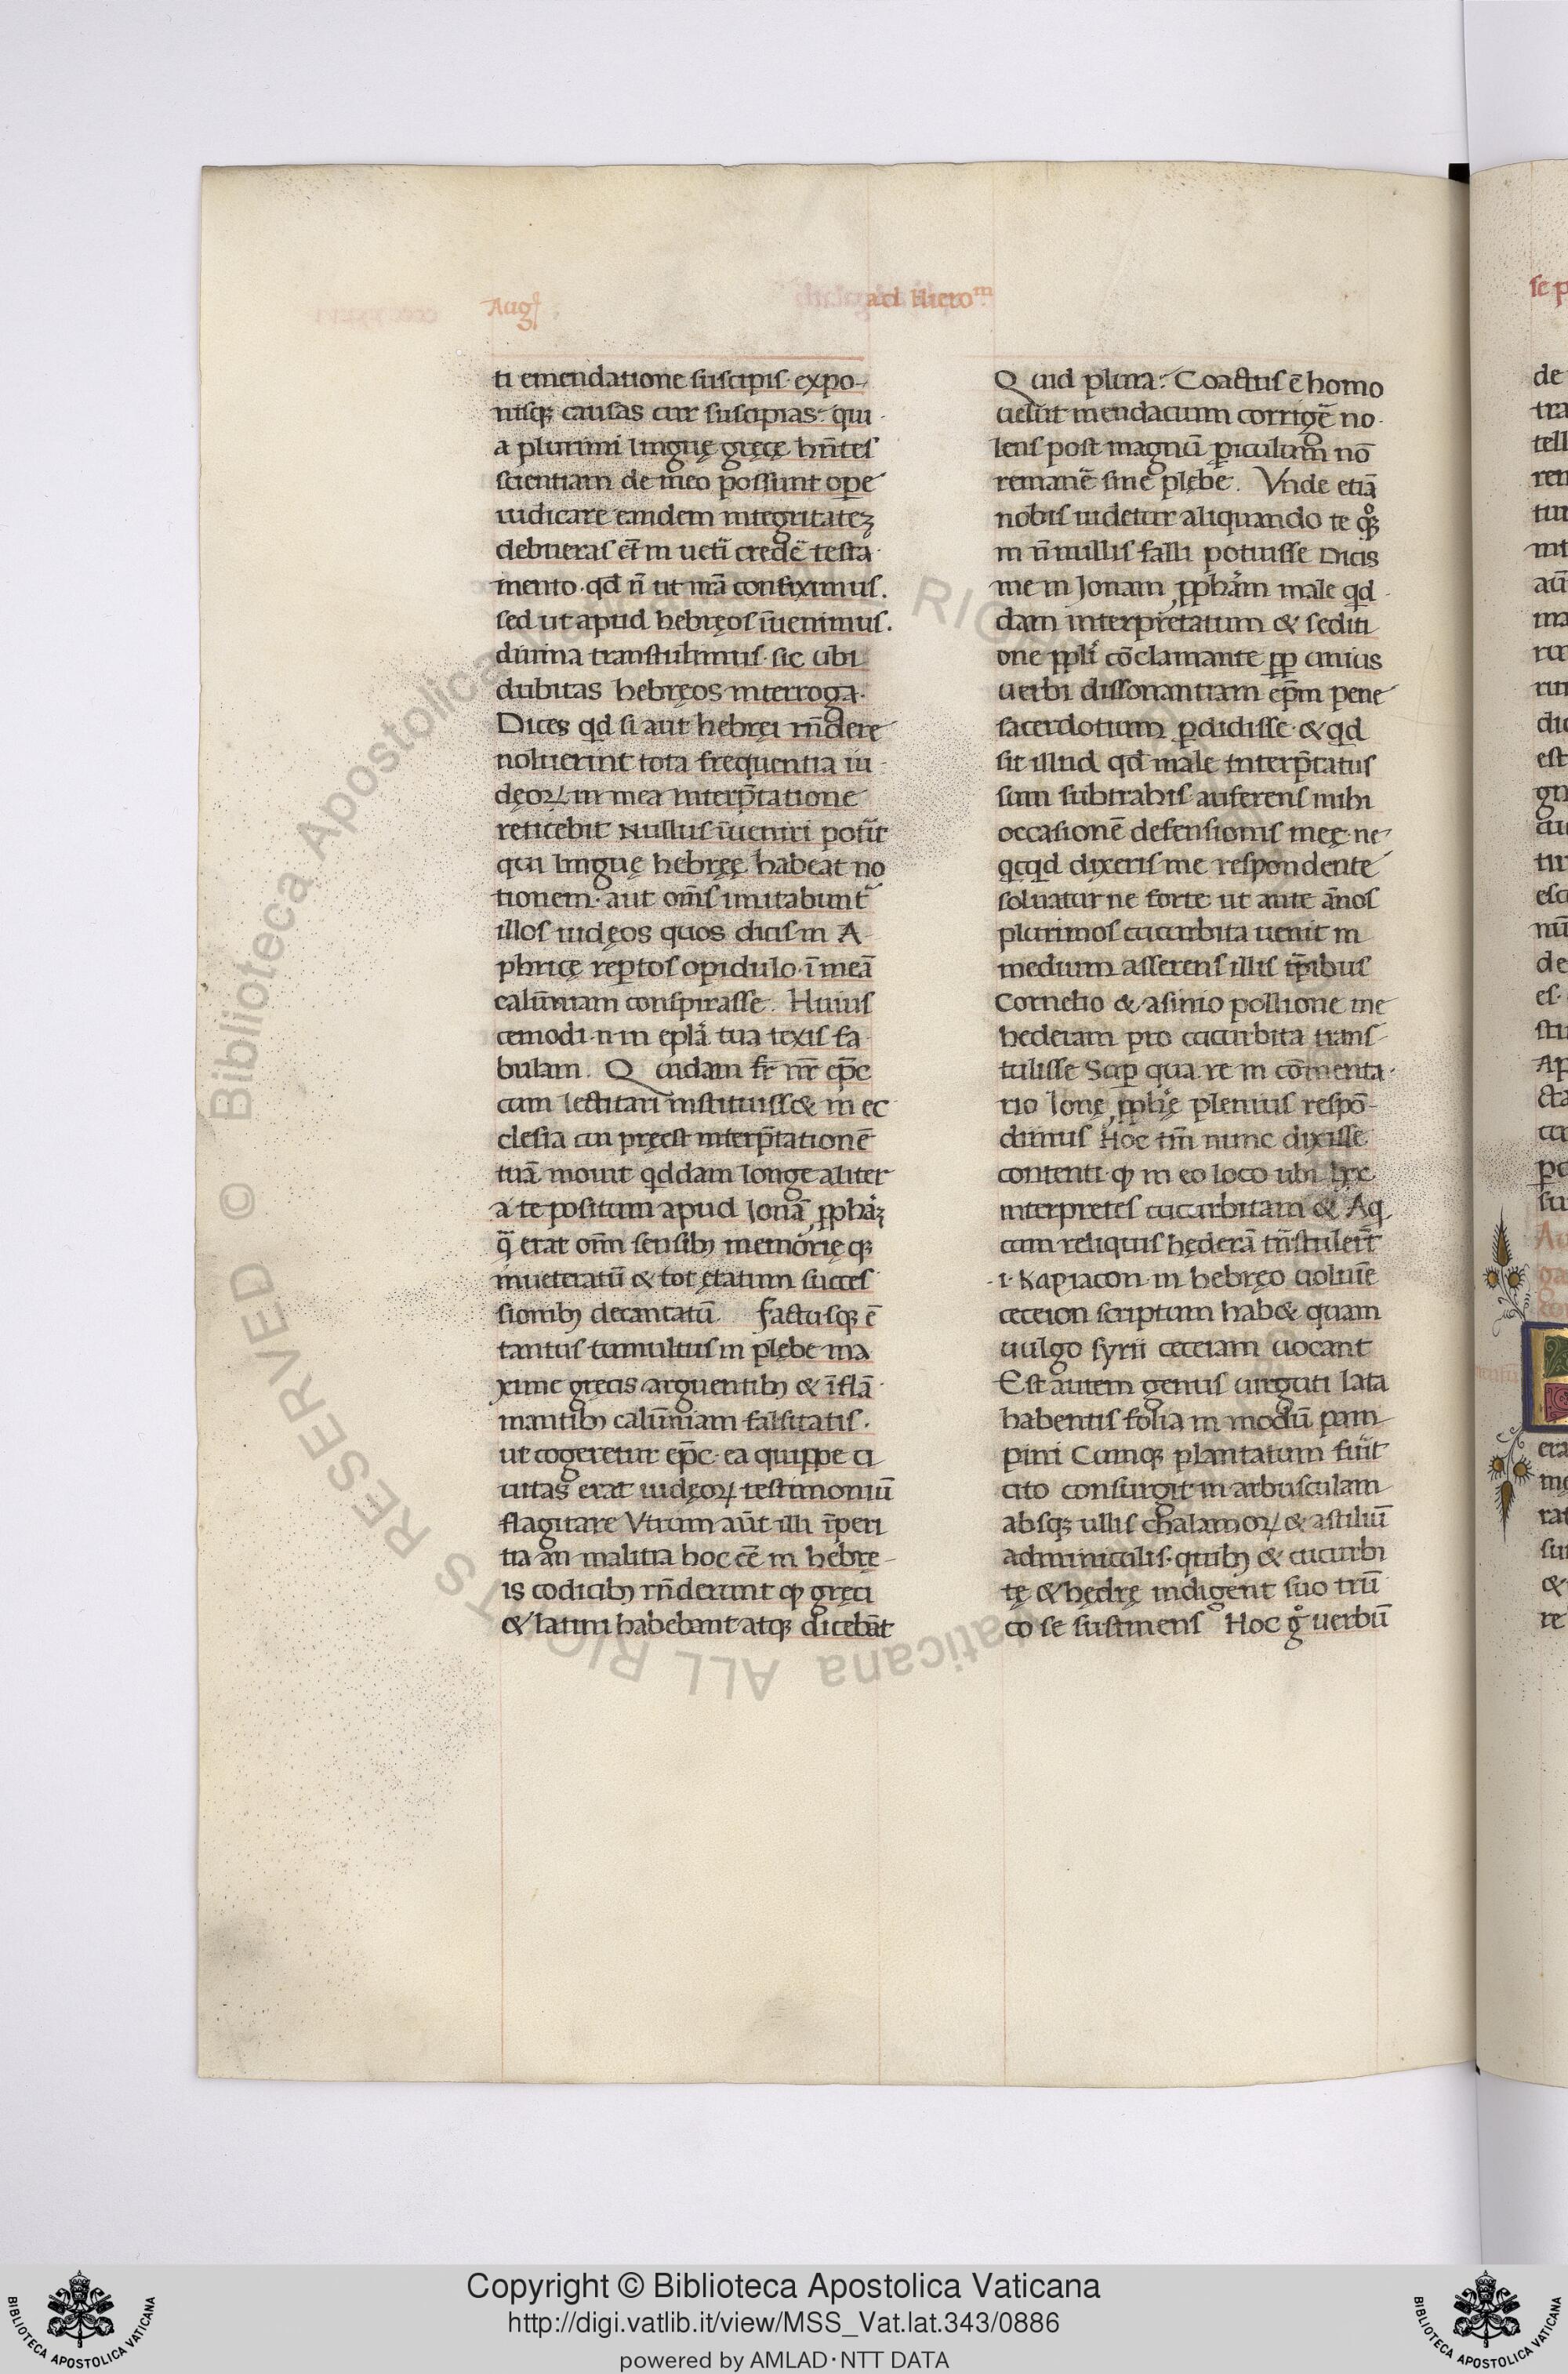 Augꝰ
ad Hieroᵐ
ti emendatione suscipis· expo-
nisqȝ causas cur suscipias· qui
a plurimi linguę gręcę hñtes
scientiam de meo possunt oꝑe
iudicare eandem integritateȝ
debueras et̄ in uet̄i creder̄ testa
mento· qd̄ ñ ut nr̄a confiximus.
sed ut apud hebręos īuenimus.
diuina transtulimus· sic ubi
dubitas hebręos interroga·
Dices qd̄ si aut hebręi rn̄dere
noluerint tota frequentia iu
dęoꝝ in mea interp̄tatione
reticebit Nullus īueniri pot̄it
qui linguę hebręę habeat no
tionem· aut om̄s imitabunt̄
illos iudęos quos dicis in A
phricę reꝑtos opidulo· ī meā
calūniam conspirasse. Huius
cemodi· n· in eplā tua texis fa
bulam. Quidam fr̄ nr̄ ep̄c
cum lectitari instituiss& in ec
clesia cui pręest interp̄tationē
tuā mouit qddam longe aliter
a te positum apud Ionā ꝓphāȝ
q̄ erat om̄ sensibȝ memorię qȝ
inueteratū & tot ętatum succes
sionibȝ decantatū. Factusqȝ ē
tantus tumultus in plębe ma
xime gręcis arguentibȝ & īflā
mantibȝ calūniam falsitatis.
ut cogeretur ep̄c· ea quippe ci
uitas erat iudęoꝝ testimoniū
flagitare Vtrum aūt illi īperi
tia an malitia hoc ēē in hebrę-
is codicibȝ rn̄derunt ꝙ gręci
& latini habebant atqȝ dicebāt
Quid plura: Coactus ē homo
uelut mendacium corriger̄ no
lens post magnū ꝑiculum nō
remaner̄ sine plębe. Vnde etiā
nobis uidetur aliquando te qͦqȝ
in ñnullis falli potuisse Dicis
me in Jonam ꝓpham male qd
dam interpretatum & sediti
one ppli cōclamante ꝓp unius
uerbi dissonantiam ep̄m pene
sacerdotium ꝑdidisse· & qd
sit illud qd̄ male interp̄tatus
sum subtrahis auferens mihi
occasionē defensionis męę· ne
qcqd dixeris me respondente
soluatur ne forte ut ante ānos
plurimos cucurbita uenit in
medium asserens illis tp̄ribus
Cornelio & asinio pollione me
hederam pro cucurbita trans-
tulisse Suꝑ qua re in cōmenta
rio Ionę ꝓphę plenius respō-
dimus Hoc tm̄ nunc dixisse
contenti· ꝙ in eo loco ubi lxx
interpretes cucurbitam & Aq
cum reliquis hęderā tn̄stuler̄t
·i· Kapiacon in hebręo uolumē
ceceion scriptum hab& quam
uulgo syrii ceceiam uocant
Est autem genus uirguti lata
habentis folia in modū pam
pini Cumqȝ plantatum fuīt
cito consurgit in arbusculam
absqȝ ullis chalamoꝝ & astiliū
adminiculis· quibȝ & cucurbi
tę & hędrę indigent suo trū
co se sustinens Hoc gͦ uerbū
Copyright © Biblioteca Apostolica Vaticana
http://digi.vatlib.it/view/MSS_Vat.lat.343/0886
powered by AMLAD·NTT DATA
BIBLIOTECA APOSTOLICA VATICANA
BIBLIOTECA APOSTOLICA VATICANA